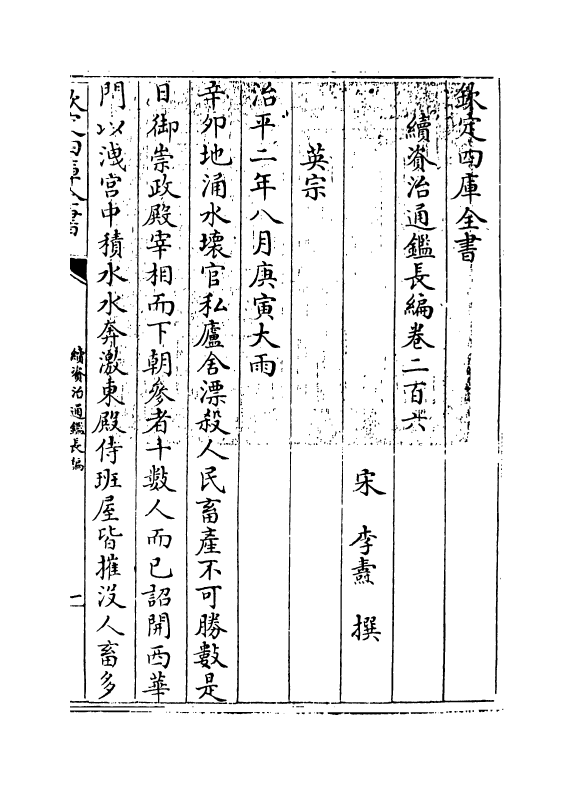 欽定四庫全書
續資治通鑑長編卷二百六
宋 李燾 撰
英宗
治平二年八月庚寅大雨
辛卯地涌水壞官私廬舍漂殺人民畜產不可勝數是
日御崇政殿宰相而下朝參者十數人而已詔開西華
門以洩宫中積水水奔激東殿侍班屋皆摧没人畜多
欽定四庫全書
續資治通鑑長編
一